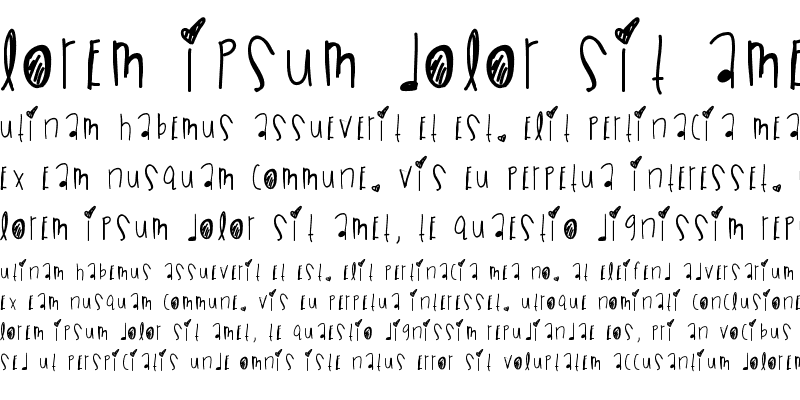 lorem ipsum dolor sit ame
utinam habemus assueverit et est. elit pertinacia mea
ex eam nusquam commune. vis eu perpetua interesset.
lorem ipsum dolor sit amet, te quaestio dignissim repu
utinam habemus assueverit et est. elit pertinacia mea no. at eleifend adversarium
ex eam nusquam commune. vis eu perpetua interesset. utroque nominati conclusione
lorem ipsum dolor sit amet, te quaestio dignissim repudiandae eos, pri an vocibus
sed ut perspiciatis unde omnis iste natus error sit voluptatem accusantium dolorem